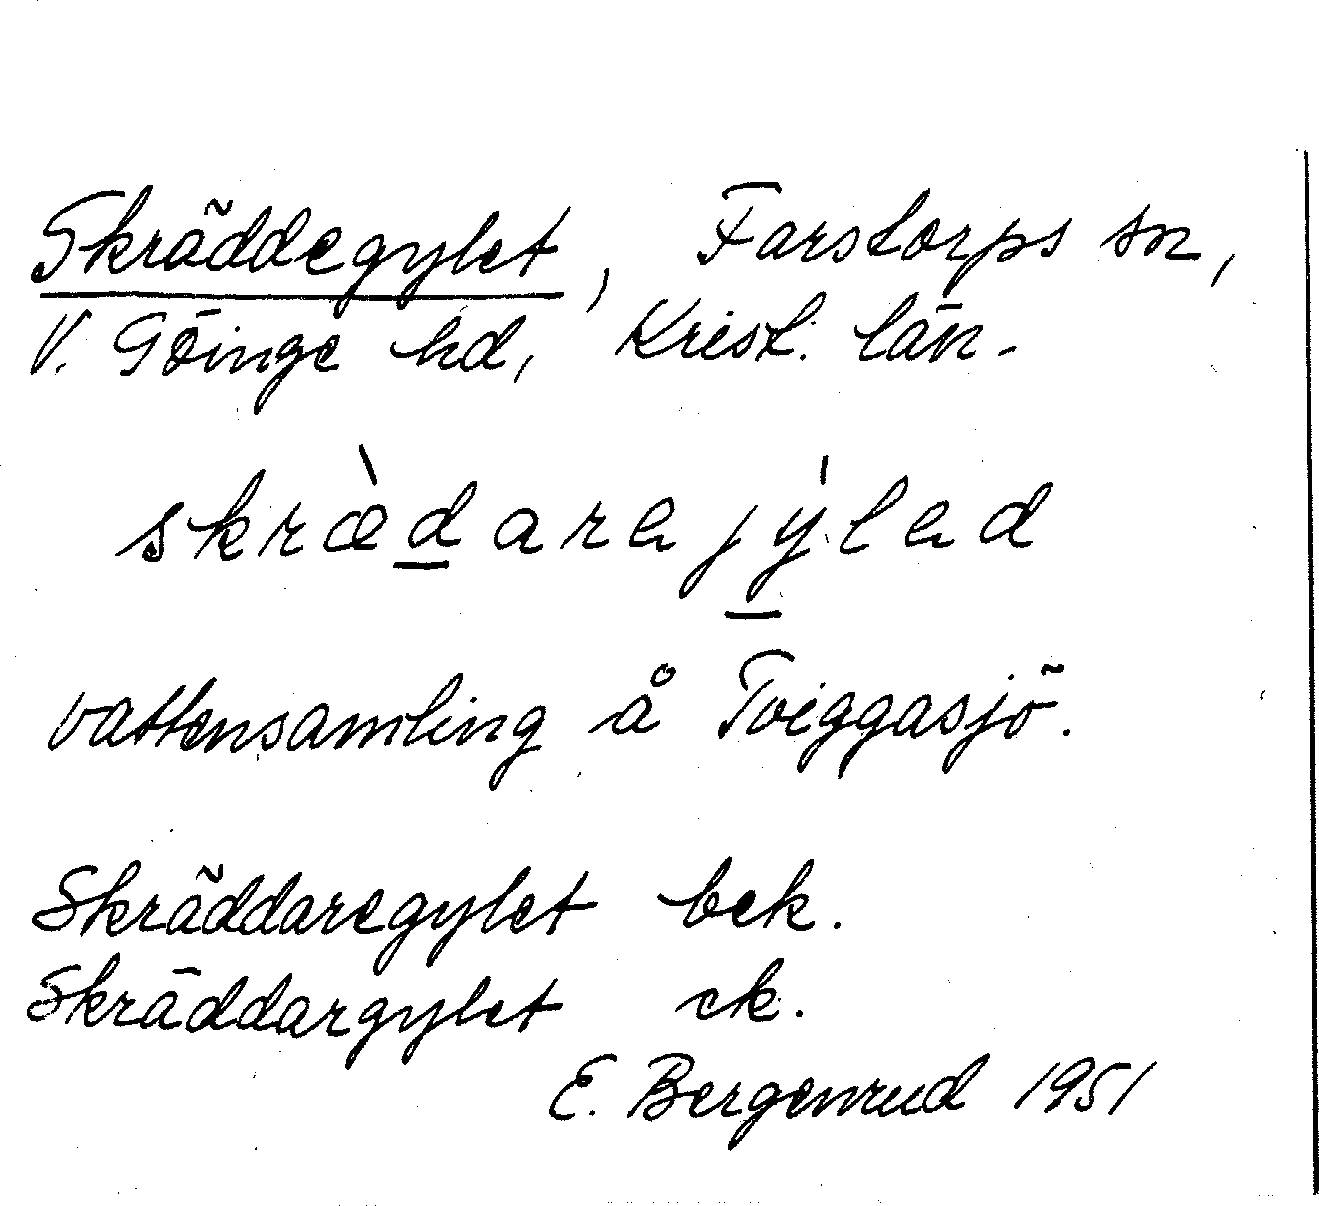 Skräddegylet, Farstorps sn,
V. Göinge hd, Krist. län.
skræ̀daraȷýlad
vattensamling å Tviggasjö.
Skräddaregylet bek.
Skräddargylet ek.
E. Bergenrud 1951